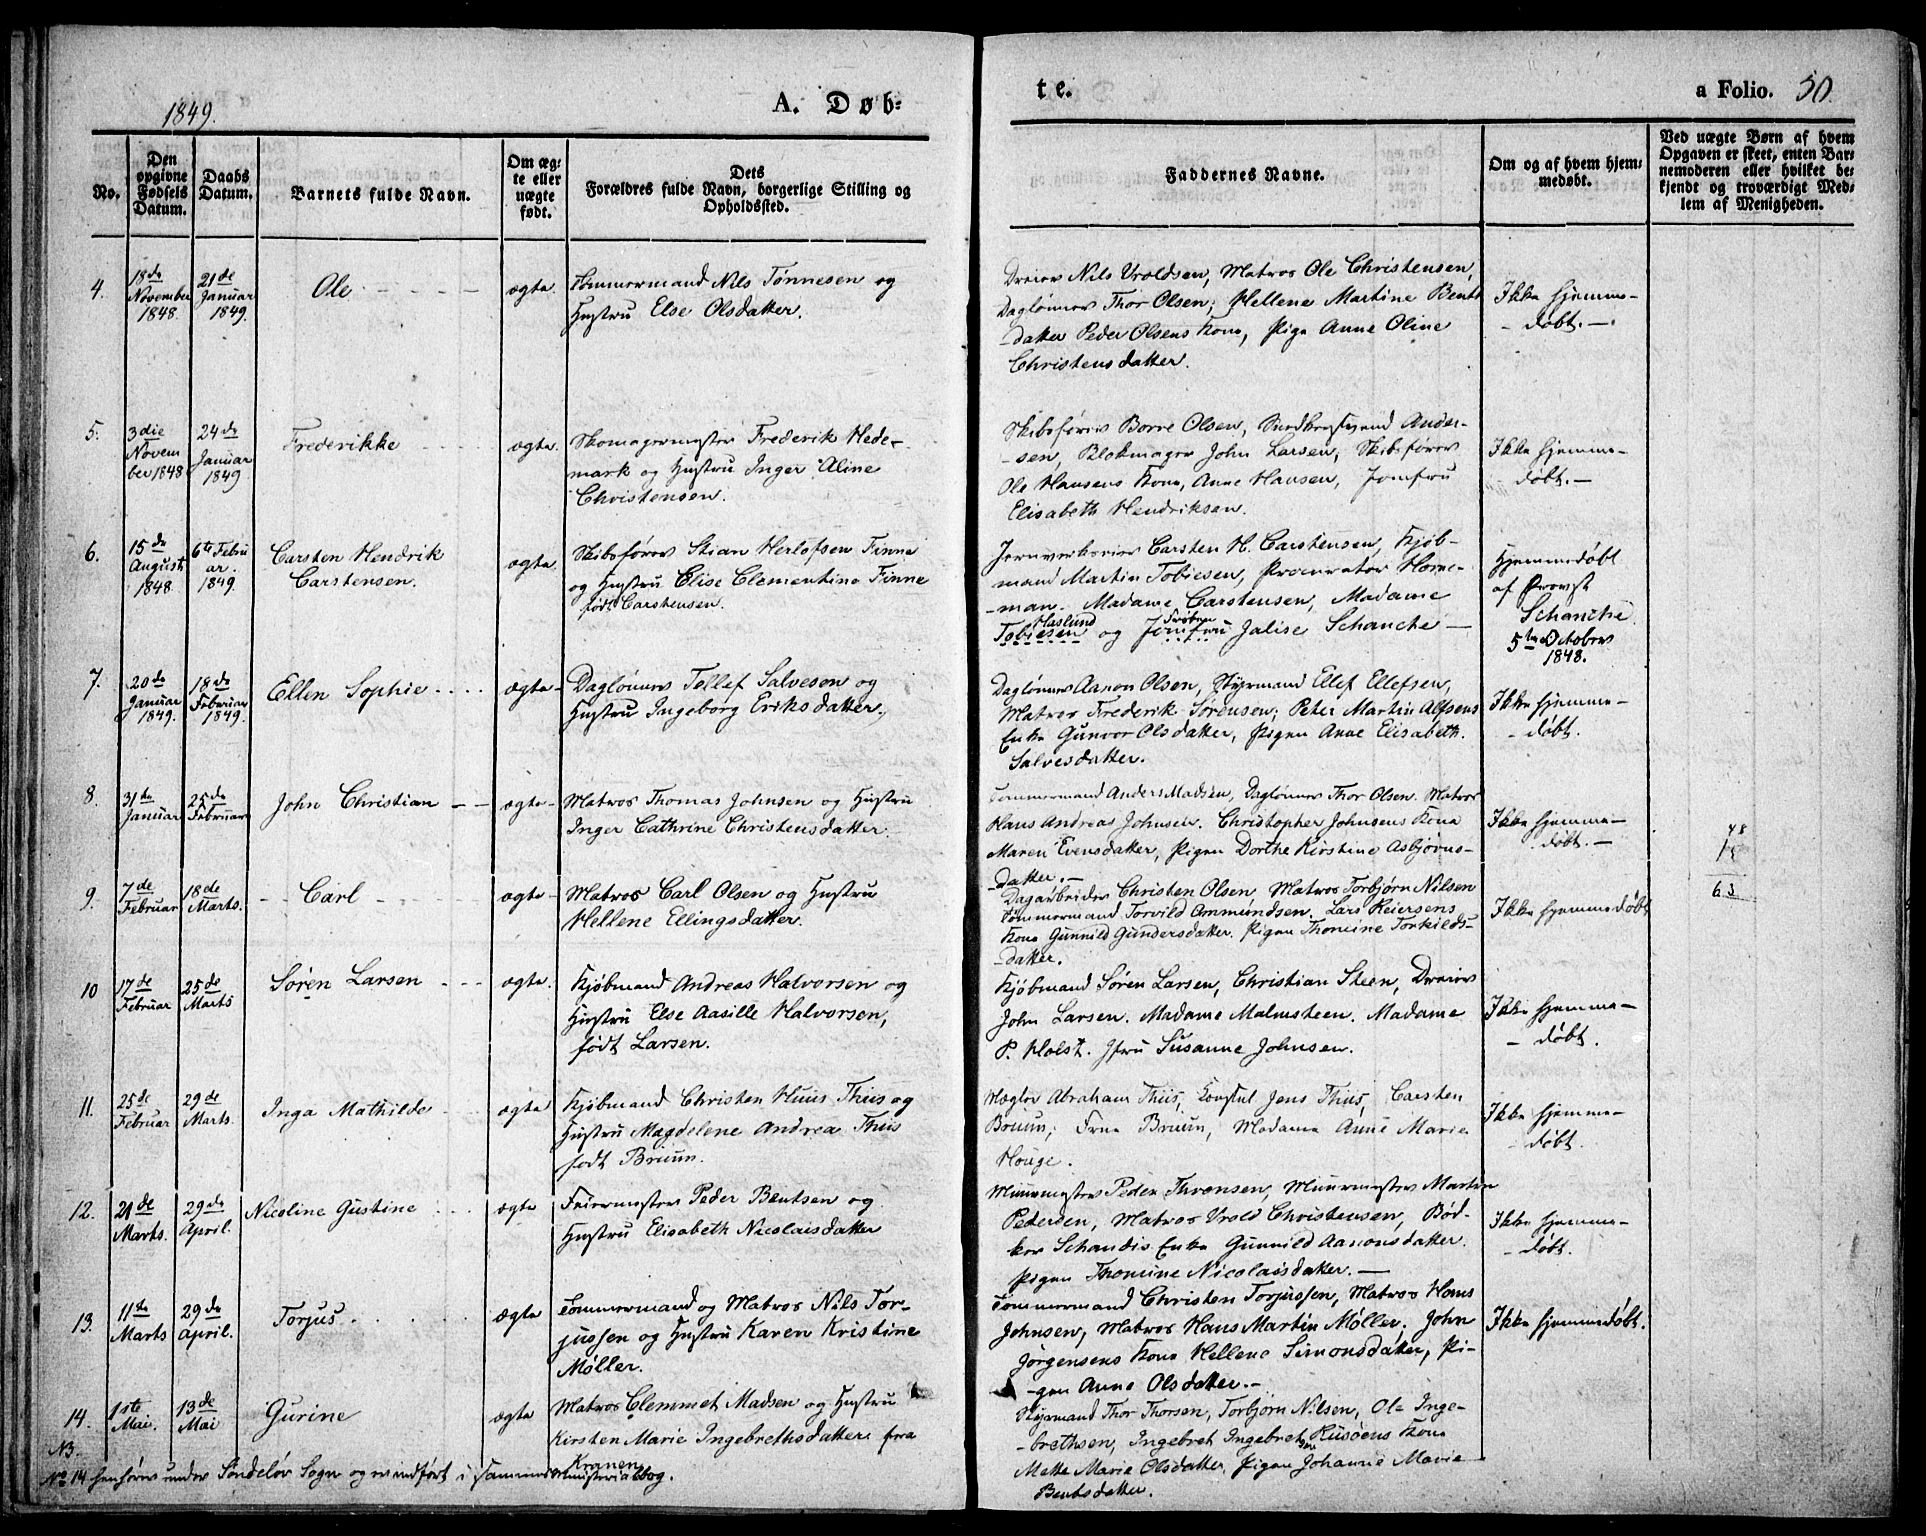 1849.
A. Døb=
te.
a Folio. 50.
No.
Den opgivne Fødsels Datum.
Daabs Datum.
Barnets fulde Navn.
Om ægte eller uægte født.
Dets Forældres fulde Navn, borgerlige Stilling og Opholdssted.
Faddernes Navne.
Om og af hvem hjemmedøbt.
Ved uægte Børn af hvem Opgaven er skeet, enten Barnemoderen eller hvilket bekjendt og troværdigt Medlem af Menigheden.
4.
18de November 1848.
21de Januar 1849.
Ole
ægte.
Tømmermand Nils Tønnesen og
Hustru Else Olsdatter.
Dreier Nils Vroldsen, Matros Ole Christensen,
Daglønner Thor Olsen; Hellene Martine Bents
datter Peder Olsens Kone, Pige Anne Oline
Christensdatter.
Ikke hjemme-
-døbt.-
5.
3die November 1848
24de Januar 1849
Frederikke
ægte.
Skomagermester Frederik Hede-
mark og Hustru Inger Aline
Christensen.
Skibsfører Borre Olsen, Snedkersvend Ander-
-sen, Blokmager John Larsen, Skibsfører
Ole Hansens Kone, Anne Hansen, Jomfru
Elisabeth Hendriksen.
Ikke hjemme-
-døbt.-
6.
15de August 1848
6te Februar. 1849.
Carsten Hendrik
Carstensen.
ægte.
Skibsfører Stian Herlofsen Finne
og Hustru Elise Clementine Finne
født Carstensen.
Jernverkseier Carsten H. Carstensen, Kjøb-
mand Martin Tobiesen, Procurator Horne-
-man. Madame Carstensen, Madame
Haslund Frøken
Tobiesen og Jomfru Jalise Schanche -
Hjemmedøbt
af Provst
Schanche
5te October
1848.
7.
20de Januar 1849.
18de Februar 1849.
Ellen Sophie
ægte-
Daglønner Tellef Salvesen og
Hustru Ingeborg Eriksdatter.
Daglønner Aanon Olsen, Styrmand Ellef Ellefsen,
Matros Frederik Sørensen; Peter Martin Alfsens
Enke Gunvor Olsdatter, Pigen Anne Elisabeth
Salvesdatter.
Ikke hjemme-
-døbt.
8.
31te Januar
25de Februar
John Christian
ægte-
Matros Thomas Johnsen og Hustru
Inger Cathrine Christensdatter.
Tømmermand Anders Madsen, Dagløner Thor Olsen. Matros
Hans Andreas Johnsen. Christopher Johnsens Kone
Maren Evensdatter, Pigen Dorthe Kirstine Asbjørns-
datter.-
Ikke hjemme-
døbt.-
48
63
9.
7de Februar
18de Marts.
Carl
ægte-
Matros Carl Olsen og Hustru
Hellene Ellingsdatter.
Dagarbeider Christen Olsen, Matros Torbjørn Nilsen
Tømmermand Torvild Ammundsen. Lars Reiersens
Kone Gunnild Gundersdatter. Pigen Thomine Torkilds-
-datter.
Ikke hjemmedøbt
10
17de Februar
25de Marts
Søren Larsen
ægte.
Kjøbmand Andreas Halvorsen og
Hustru Else Aasille Halvorsen,
født Larsen.
Kjøbmand Søren Larsen, Christian Steen, Dreier
John Larsen. Madame Malmsteen. Madame
P. Holst. Jfru Susanne Johnsen.
Ikke hjemme-
-døbt.
11.
25de Februar
29de Marts.
Inga Mathilde
ægte
Kjøbmand Christen Huus Thiis og
Hustru Magdelene Andrea Thiis
født Bruun.
Mægler Abraham Thiis, Konsul Jens Thiis, Carsten
Bruun; Frue Bruun, Madame Anne Marie
Houge.
Ikke hjemme-
-døbt.
12.
21de Marts.
29de April.
Nicoline Gustine
ægte
Feiermester Peder Bentsen og
Hustru Elisabeth Nicolaisdatter
Muurmester Peder Thronsen, Muurmester Martin
Petersen, Matros Vrold Christensen, Bød-
ker Schandis Enke Gunnild Aanonsdatter.
Pigen Thomine Nicolaisdatter.-
Ikke hjemme-
-døbt.
13.
11te Marts
29de April.
Torjus.
ægte
Tømmermand og Matros Nils Tor-
jussen og Hustru Karen Kristine
Møller.
Tømmermand Christen Torjussen, Matros Hans
Johnsen, Matros Hans Martin Møller. John
Jørgensens Kone Hellene Simonsdatter, Pi-
-gen Anne Olsdatter.-
Ikke hjemmedøbt.
14.
1ste Mai.
13de Mai
Gurine
ægte
Matros Clemmet Madsen og Hustru
Kirsten Marie Ingebrethsdatter fra
Kranen
Styrmand Thor Thorsen, Torbjørn Nilsen, Ole Inge-
-brethsen, Ingebret Ingebretsen Risøens Kone
Mette Marie Olsdatter, Pigen Johanne Marie
Bentsdatter.
NB.
No 14 henhører under Søndeløv Sogn og er indført i sammes ministerialbog.